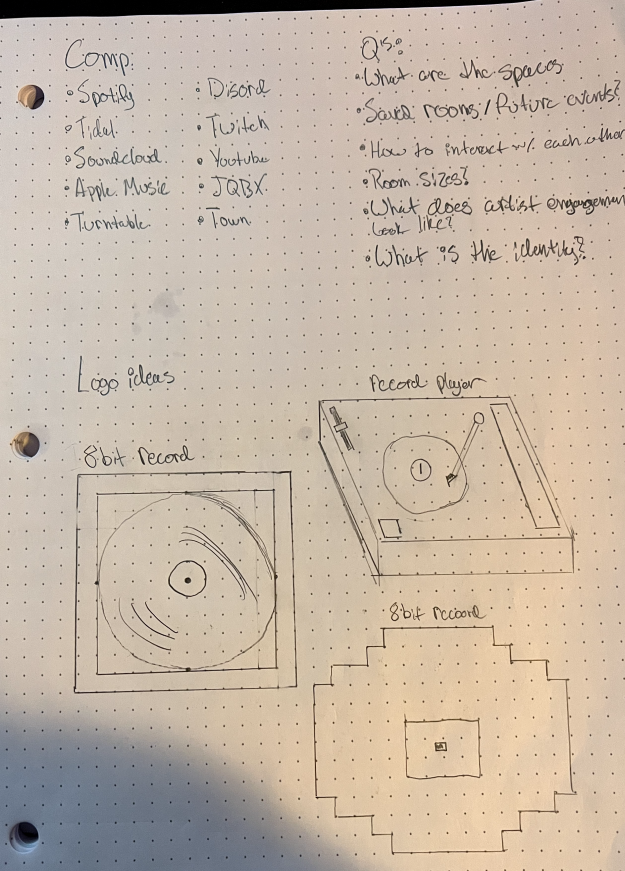 Comp.
• Spotify
• Tidal
• Soundcloud
• Apple Music
• Turntable
• Disord
• Twitch
• Youtube
• JQBX
• Town
Q's:
• What are the spaces
• Saved rooms / Future events?
• How to interact w/ each other
• Room sizes?
• What does artist engagemen
look like?
• What is the identity?
Logo ideas
8bit record
record player
8bit record